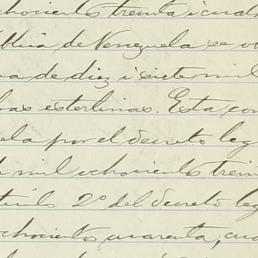 chocientos treinta i cuat
ública de Venezuela se o
ma de diez i siete mil
bras esterlinas. Esta co
ela por el decreto leg
mil ochocientos trein
tículo 2º del decreto leg
chocientos cuarenta, cua